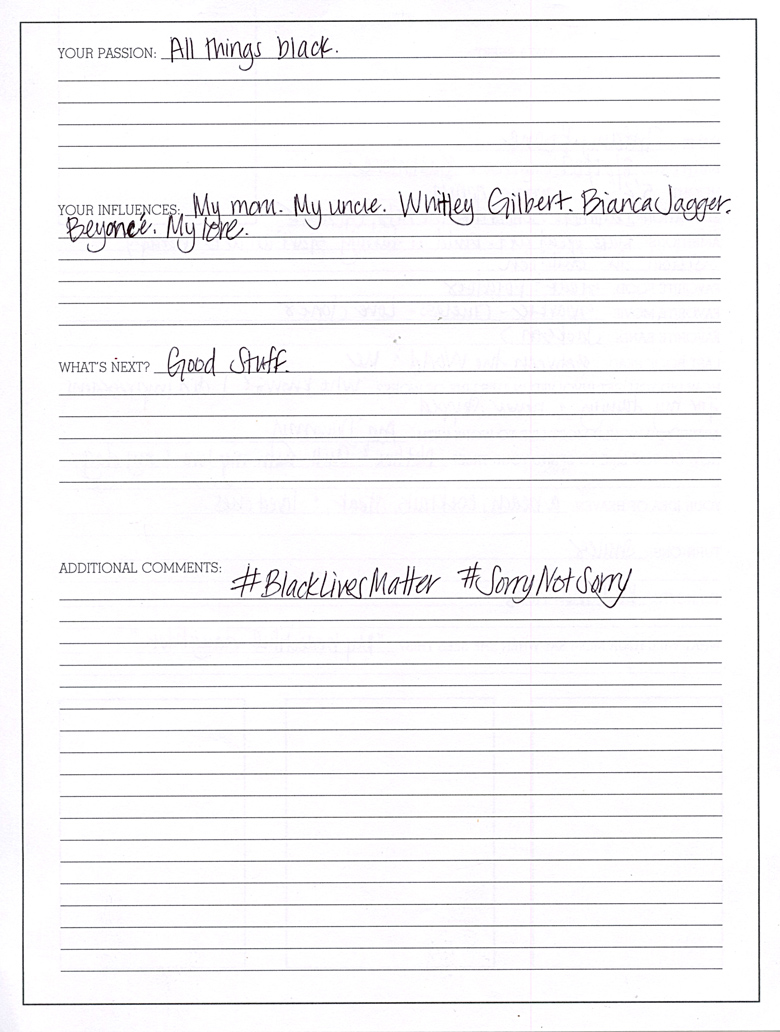 YOUR PASSION: All things black.
YOUR INFLUENCES: My mom. My uncle. Whitley Gilbert. Bianca Jagger.
Beyoncé. My love.
WHAT'S NEXT? Good Stuff.
ADDITIONAL COMMENTS: #BlackLivesMatter #SorryNotSorry